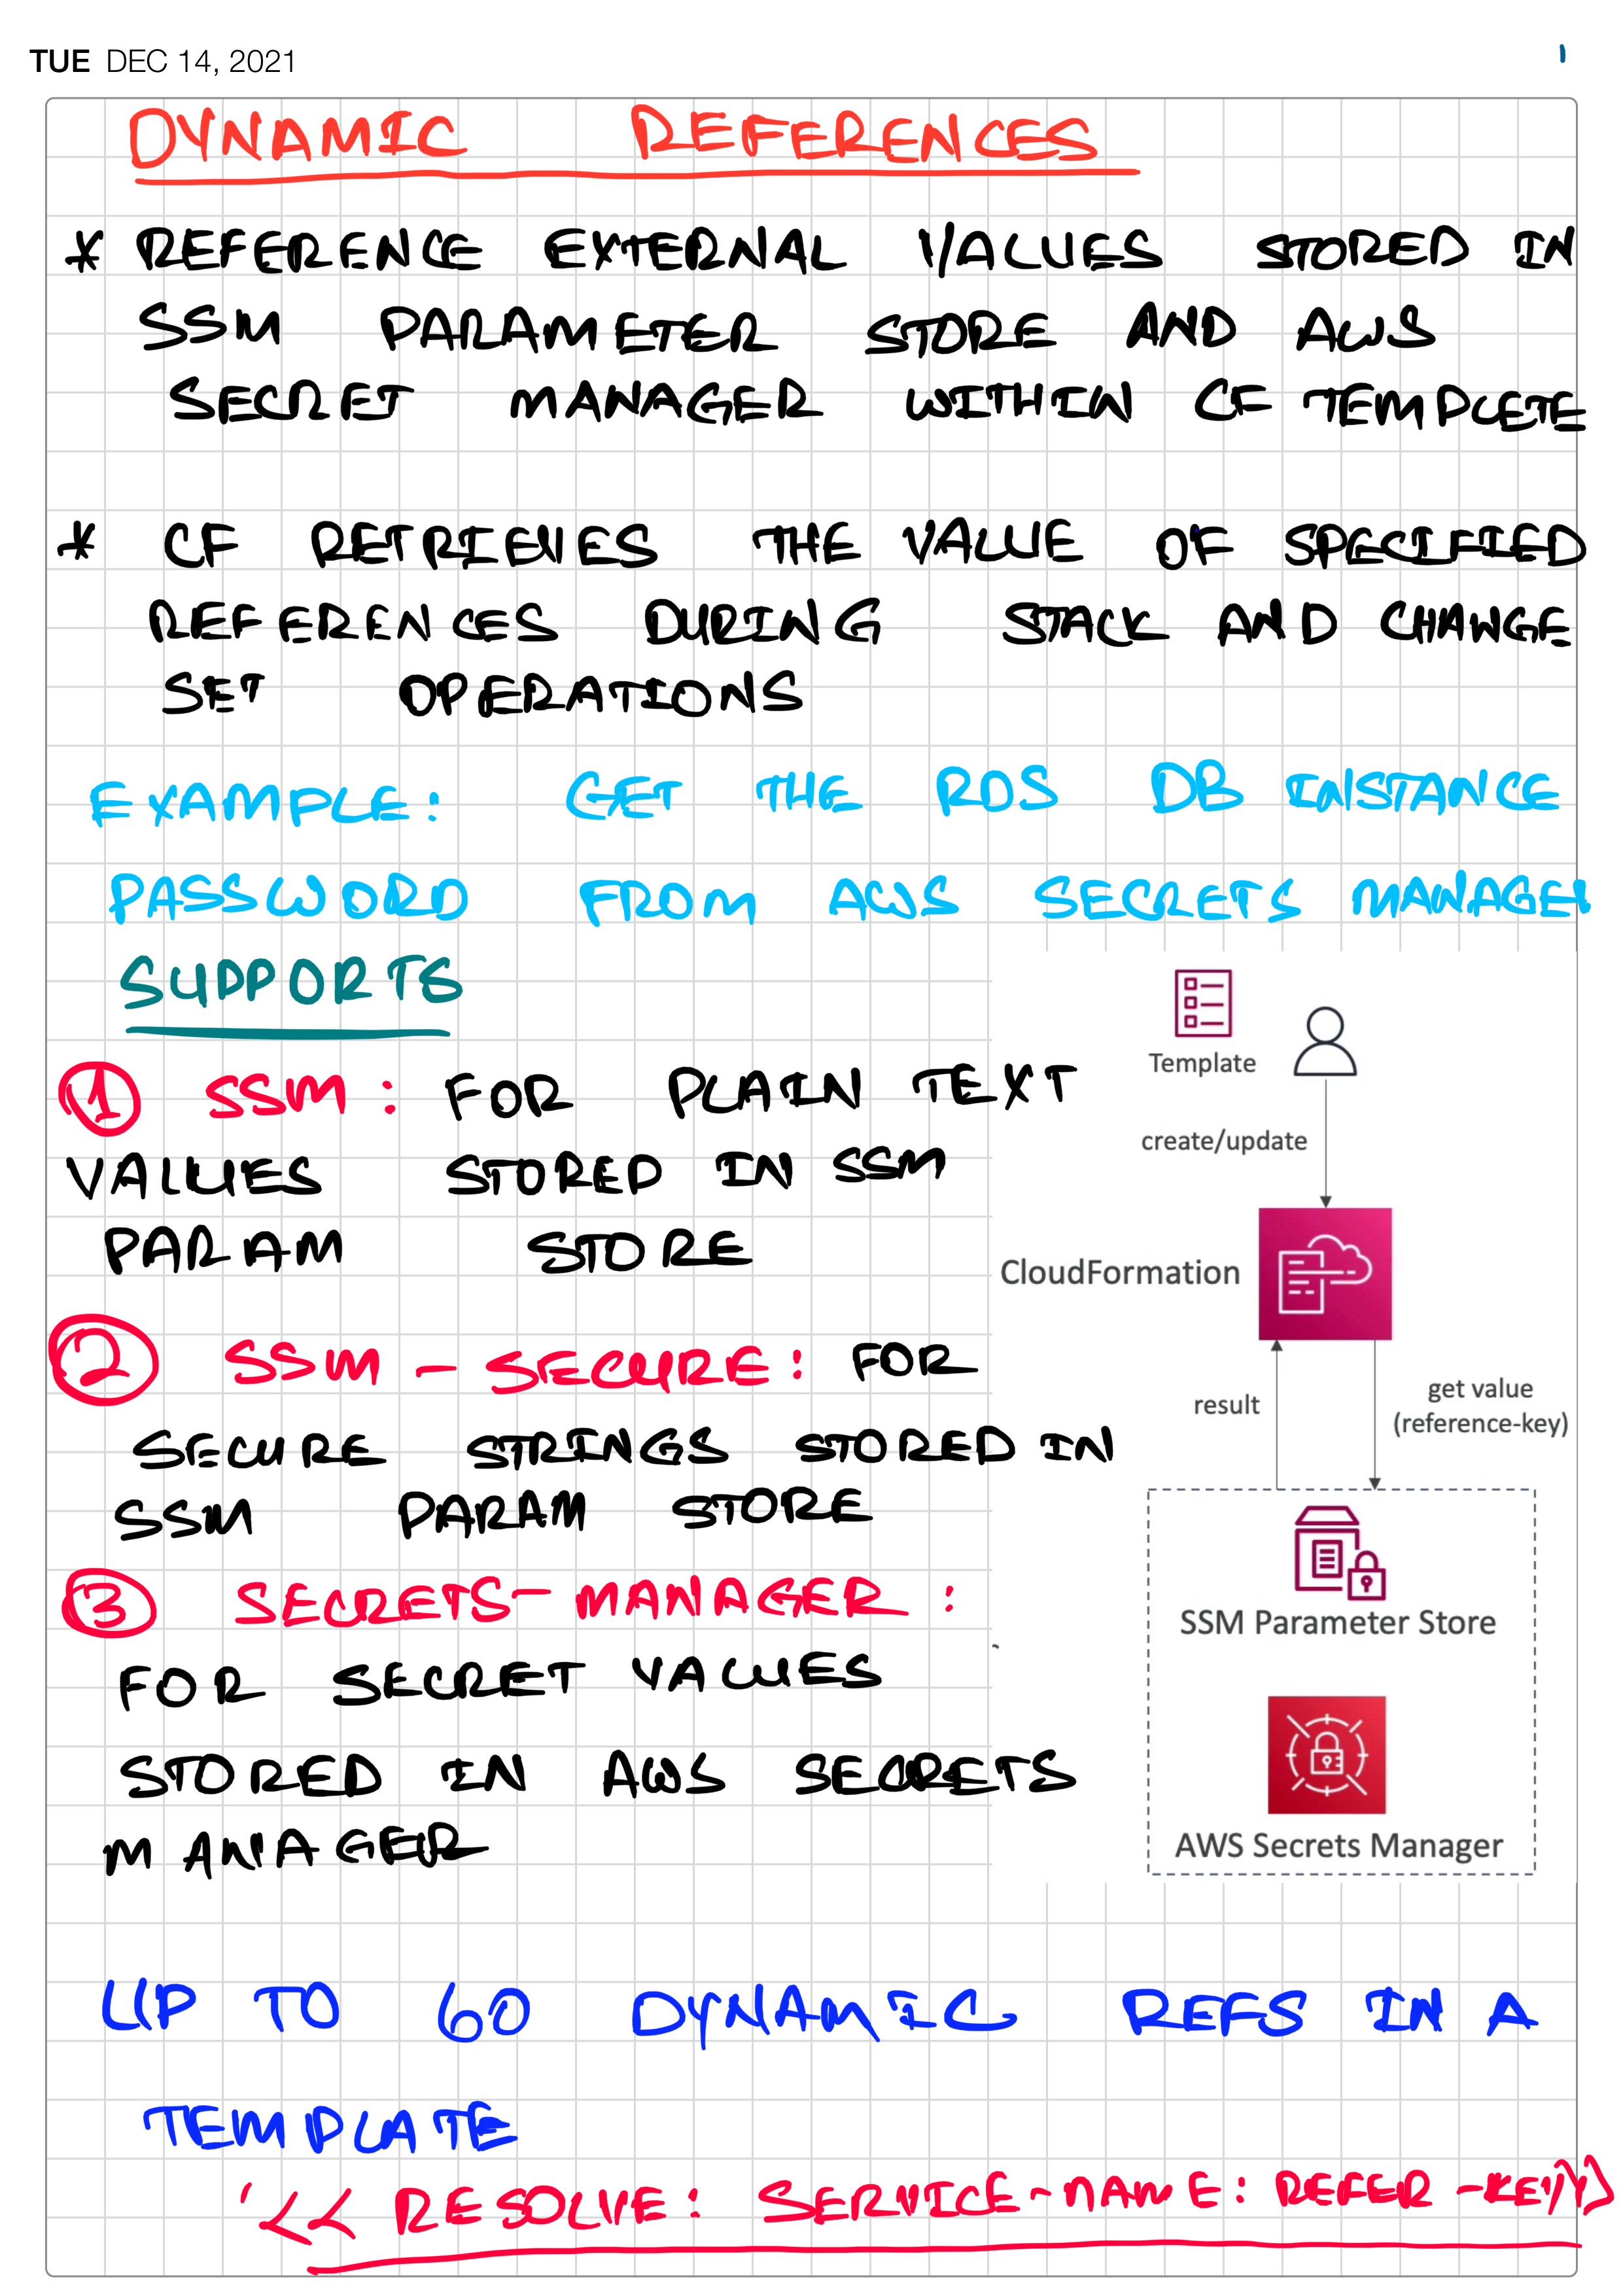 TUE DEC 14, 2021
1
DYNAMIC REFERENCES
* REFERENCE EXTERNAL VALUES STORED IN
SSM PARAMETER STORE AND AWS
SECRET MANAGER WITHIN CF TEMPLETE
* CF RETRIEVES THE VALUE OF SPECIFIED
REFERENCES DURING STACK AND CHANGE
SET OPERATIONS
EXAMPLE: GET THE RDS DB INSTANCE
PASSWORD FROM AWS SECRETS MANAGER
SUPPORTS
1 SSM: FOR PLAIN TEXT
VALUES STORED IN SSM
PARAM STORE
2 SSM-SECURE: FOR
SECURE STRINGS STORED IN
SSM PARAM STORE
3 SECRETS-MANAGER:
FOR SECRET VALUES
STORED IN AWS SECRETS
MANAGER
Template
create/update
CloudFormation
result
get value
(reference-key)
SSM Parameter Store
AWS Secrets Manager
UP TO 60 DYNAMIC REFS IN A
TEMPLATE
'{{ RESOLVE: SERVICE-NAME: REFER-KEY}}